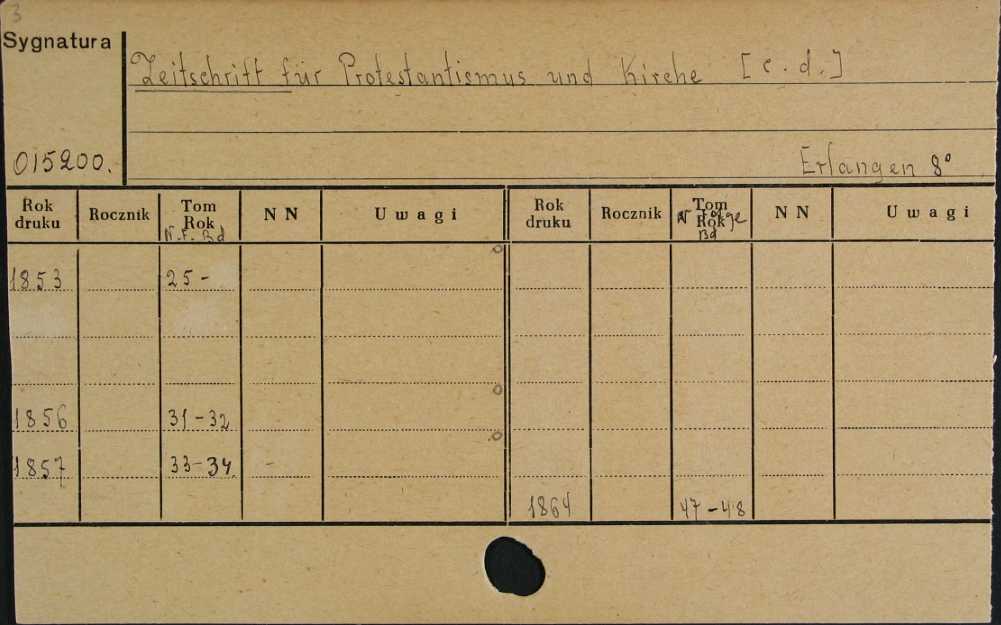 3
Sygnatura
Zeitschrift für Protestantismus und Kirche [c.d.]
015200.
Erlangen 8°
Rok druku Rocznik Tom Rok N.F. Bd NN Uwagi Rok druku Rocznik Tom Rok N Folge Bd NN Uwagi
1853 25 -
1856 31-32
1857 33-34. -
1864 47-48